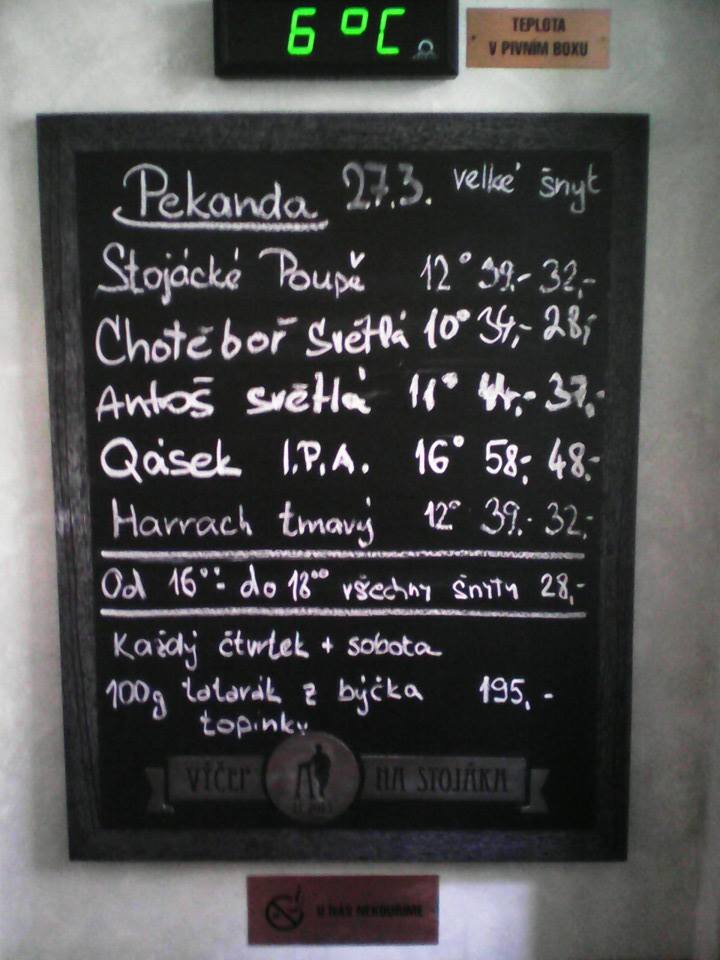 6°C
TEPLOTA
V PIVNÍM BOXU
Pekanda 27.3. velké šnyt
Stojácké Poupě 12° 39,- 32,-
Chotěboř Světlá 10° 34,- 28,-
Antoš světlá 11° 44,- 37,-
Qásek I.P.A. 16° 58,- 48,-
Harrach tmavý 12° 39,- 32,-
Od 16°° do 18°° všechny šnity 28,-
Každý čtvrtek + sobota
100g tatarák z býčka 195,-
topinky
VÝČEP NA STOJÁKA
U NÁS NEKOUŘÍME